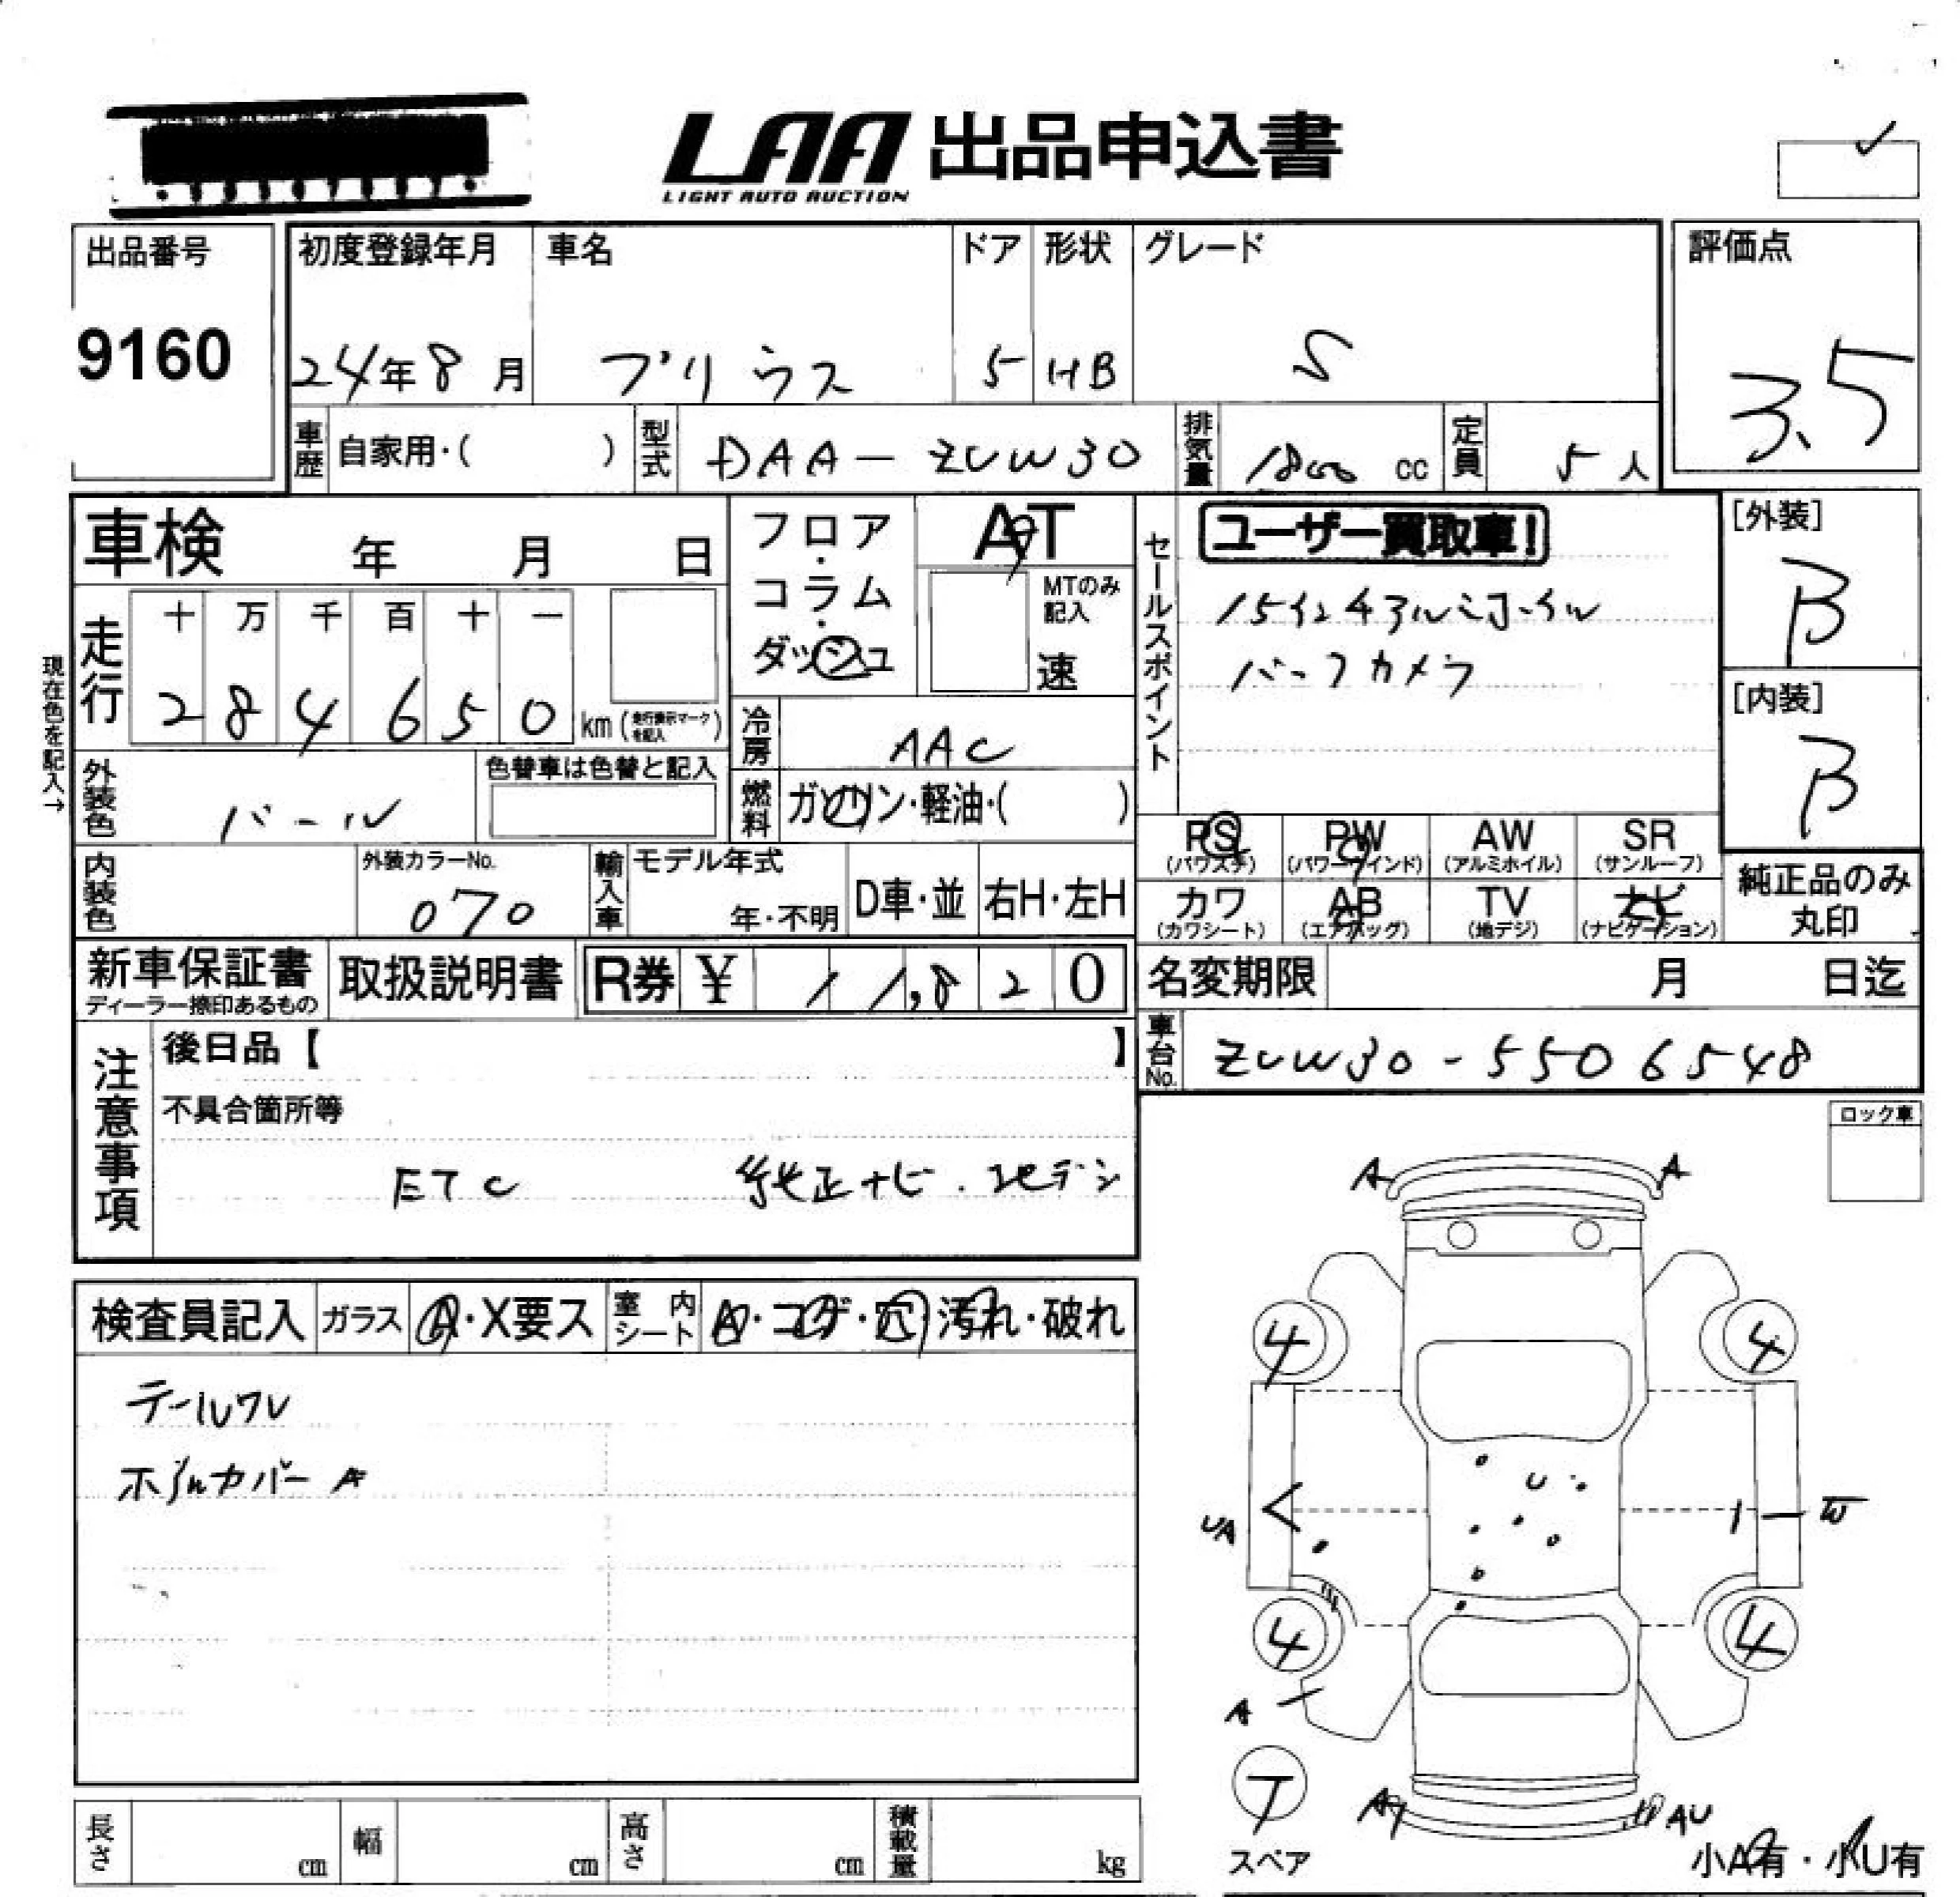 LAA 出品申込書
LIGHT AUTO AUCTION
出品番号
9160
初度登録年月
24年8月
車名
プリウス
ドア
5
形状
HB
グレード
S
評価点
3.5
車歴
自家用・( )
型式
DAA-ZVW30
排気量
1800 cc
定員
5人
車検 年 月 日
フロア・コラム・ダッシュ
AT
MTのみ記入
速
セールスポイント
ユーザー買取車!
15インチアルミホイル
バックカメラ
[外装]
B
[内装]
B
現在色を記入→
走行
十 万 千 百 十 一
2 8 4 6 5 0 km (走行表示マークを記入)
冷房
AAC
外装色
パール
色替車は色替と記入
燃料
ガソリン・軽油・( )
PS
(パワステ)
PW
(パワーウインド)
AW
(アルミホイル)
SR
(サンルーフ)
カワ
(カワシート)
AB
(エアバッグ)
TV
(地デジ)
ナビ
(ナビゲーション)
純正品のみ
丸印
内装色
外装カラーNo.
070
輸入車
モデル年式
年・不明
D車・並
右H・左H
新車保証書
ディーラー捺印あるもの
取扱説明書
R券 ¥ 11,820
名変期限 月 日迄
車台No.
ZVW30-5506548
注意事項
後日品【 】
不具合箇所等
ETC 純正ナビ.
ロック車
検査員記入
ガラス
A・X要ス
室内シート
A・コゲ・穴・汚れ・破れ
テールワレ
カバー A
A
A
4
4
UA
U
W
4
4
A
T
スペア
A
AU
小A有・小U有
長さ cm
幅 cm
高さ cm
積載量 kg